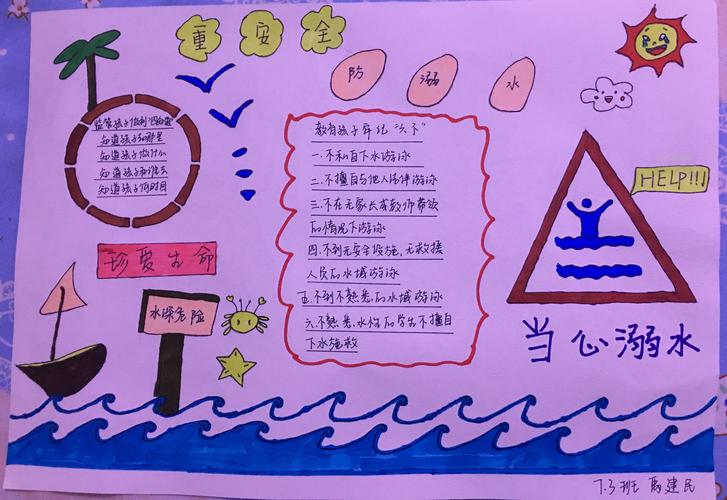 重安全
防溺水
监管孩子做到"四知道"
知道孩子和哪里
知道孩子做什么
知道孩子和谁去
知道孩子何时回
珍爱生命
水深危险
教育孩子牢记"六不"
一.不私自下水游泳
二.不擅自与他人结伴游泳
三.不在无家长或教师带领
的情况下游泳
四.不到无安全设施,无救援
人员的水域游泳
五.不到不熟悉的水域游泳
六.不熟悉水性的学生不擅自
下水施救
HELP!!!
当心溺水
7.3班 禹建民